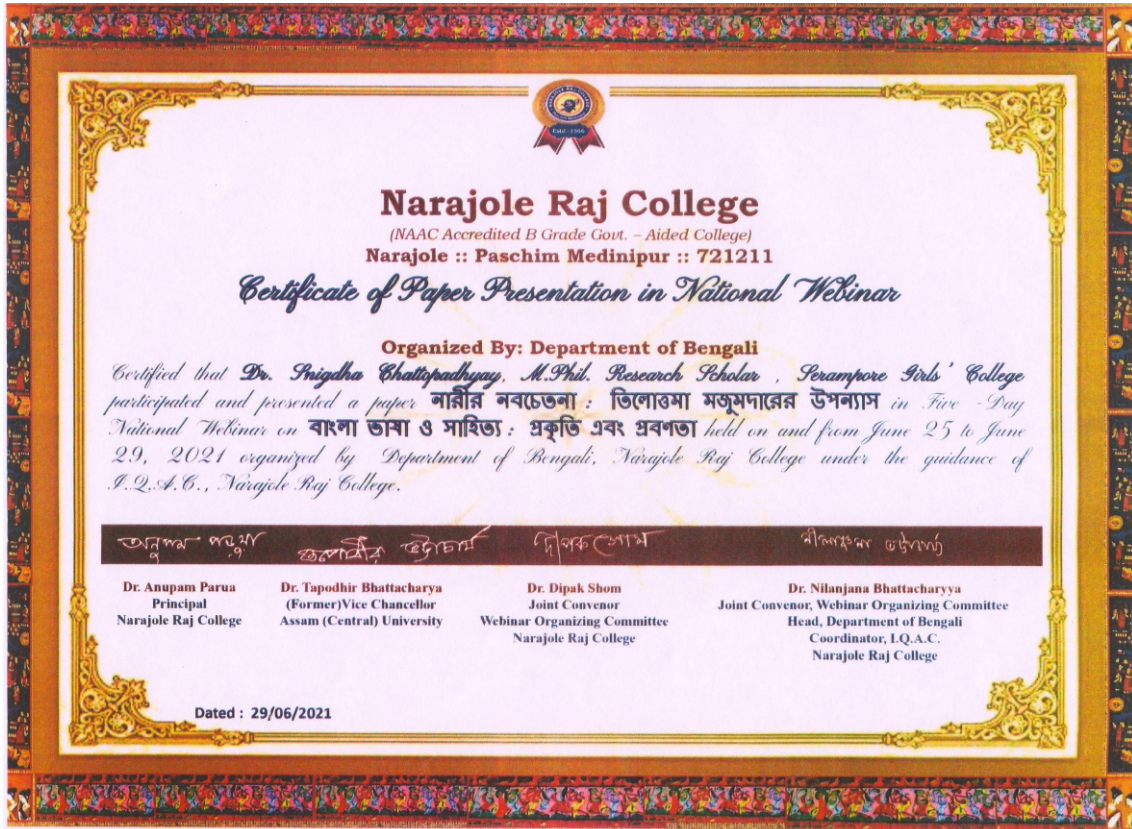 NARAJOLE RAJ COLLEGE
Estd - 1966
Narajole Raj College
(NAAC Accredited B Grade Govt. – Aided College)
Narajole :: Paschim Medinipur :: 721211
Certificate of Paper Presentation in National Webinar
Organized By: Department of Bengali
Certified that Dr. Snigdha Chattopadhyay, M.Phil. Research Scholar , Serampore Girls' College
participated and presented a paper নারীর নবচেতনা : তিলোত্তমা মজুমদারের উপন্যাস in Five -Day
National Webinar on বাংলা ভাষা ও সাহিত্য : প্রকৃতি এবং প্রবণতা held on and from June 25 to June
29, 2021 organized by Department of Bengali, Narajole Raj College under the guidance of
I.Q.A.C., Narajole Raj College.
অনুপম পড়ুয়া তপোধীর ভট্টাচার্য দীপক সোম নীলাঞ্জনা ভট্টাচার্য
Dr. Anupam Parua Dr. Tapodhir Bhattacharya Dr. Dipak Shom Dr. Nilanjana Bhattacharyya
Principal (Former)Vice Chancellor Joint Convenor Joint Convenor, Webinar Organizing Committee
Narajole Raj College Assam (Central) University Webinar Organizing Committee Head, Department of Bengali
Narajole Raj College Coordinator, I.Q.A.C.
Narajole Raj College
Dated : 29/06/2021